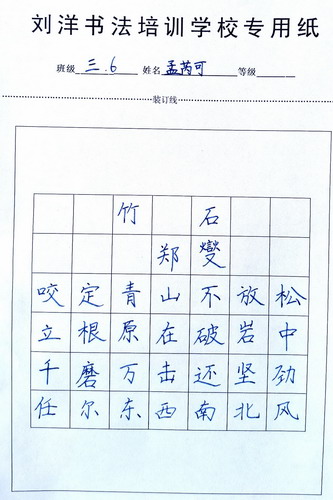 刘洋书法培训学校专用纸
班级 三.6 姓名 孟芮可 等级
装订线
竹石
郑燮
咬定青山不放松
立根原在破岩中
千磨万击还坚劲
任尔东西南北风